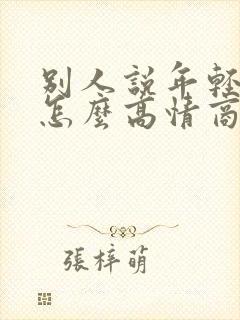 別人說年輕
怎麼高情商
張梓萌